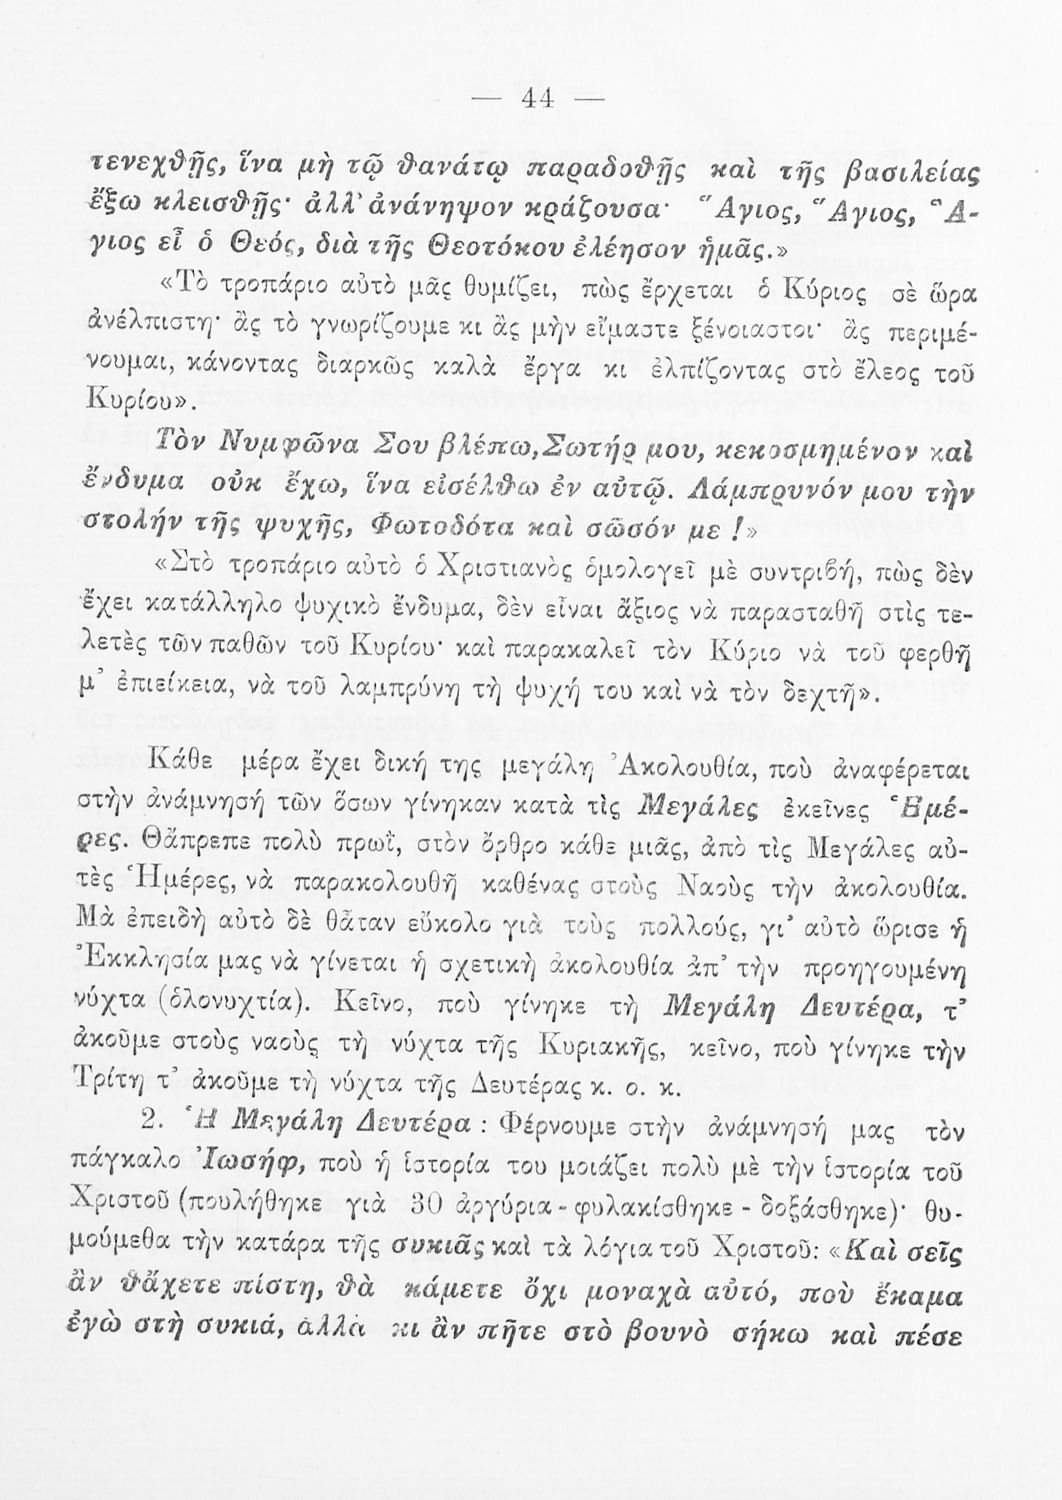 — 44 —
τενεχθῇς, ἵνα μὴ τῷ θανάτῳ παραδοθῇς καὶ τῆς βασιλείας
ἔξω κλεισθῇς· ἀλλ' ἀνάνηψον κράζουσα· Ἅγιος, Ἅγιος, Ἅ-
γιος εἶ ὁ Θεός, διὰ τῆς Θεοτόκου ἐλέησον ἡμᾶς.»
«Τὸ τροπάριο αὐτὸ μᾶς θυμίζει, πὼς ἔρχεται ὁ Κύριος σὲ ὥρα
ἀνέλπιστη· ἄς τὸ γνωρίζουμε κι ἄς μὴν εἴμαστε ξένοιαστοι· ἄς περιμέ-
νουμαι, κάνοντας διαρκῶς καλὰ ἔργα κι ἐλπίζοντας στὸ ἔλεος τοῦ
Κυρίου».
Τὸν Νυμφῶνα Σου βλέπω, Σωτήρ μου, κεκοσμημένον καὶ
ἔνδυμα οὐκ ἔχω, ἵνα εἰσέλθω ἐν αὐτῷ. Λάμπρυνόν μου τὴν
στολήν τῆς ψυχῆς, Φωτοδότα καὶ σῶσόν με !»
«Στὸ τροπάριο αὐτὸ ὁ Χριστιανὸς ὁμολογεῖ μὲ συντριβή, πὼς δὲν
ἔχει κατάλληλο ψυχικὸ ἔνδυμα, δὲν εἶναι ἄξιος νὰ παρασταθῆ στὶς τε-
λετὲς τῶν παθῶν τοῦ Κυρίου· καὶ παρακαλεῖ τὸν Κύριο νὰ τοῦ φερθῆ
μ' ἐπιείκεια, νὰ τοῦ λαμπρύνη τὴ ψυχή του καὶ νὰ τὸν δεχτῆ».
Κάθε μέρα ἔχει δική της μεγάλη Ἀκολουθία, ποὺ ἀναφέρεται
στὴν ἀνάμνησή τῶν ὅσων γίνηκαν κατὰ τὶς Μεγάλες ἐκεῖνες Ἡμέ-
ρες. Θἄπρεπε πολὺ πρωΐ, στὸν ὄρθρο κάθε μιᾶς, ἀπὸ τὶς Μεγάλες αὐ-
τὲς Ἡμέρες, νὰ παρακολουθῆ καθένας στοὺς Ναοὺς τὴν ἀκολουθία.
Μὰ ἐπειδὴ αὐτὸ δὲ θἆταν εὔκολο γιὰ τοὺς πολλούς, γι' αὐτὸ ὥρισε ἡ
Ἐκκλησία μας νὰ γίνεται ἡ σχετικὴ ἀκολουθία ἀπ' τὴν προηγουμένη
νύχτα (ὁλονυχτία). Κεῖνο, ποὺ γίνηκε τὴ Μεγάλη Δευτέρα, τ'
ἀκοῦμε στοὺς ναοὺς τὴ νύχτα τῆς Κυριακῆς, κεῖνο, ποὺ γίνηκε τὴν
Τρίτη τ' ἀκοῦμε τὴ νύχτα τῆς Δευτέρας κ. ο. κ.
2. Ἡ Μεγάλη Δευτέρα : Φέρνουμε στὴν ἀνάμνησή μας τὸν
πάγκαλο Ἰωσήφ, ποὺ ἡ ἱστορία του μοιάζει πολὺ μὲ τὴν ἱστορία τοῦ
Χριστοῦ (πουλήθηκε γιὰ 30 ἀργύρια - φυλακίσθηκε - δοξάσθηκε)· θυ-
μούμεθα τὴν κατάρα τῆς συκιᾶς καὶ τὰ λόγια τοῦ Χριστοῦ: «Καὶ σεῖς
ἂν θἄχετε πίστη, θὰ κάμετε ὄχι μοναχὰ αὐτό, ποὺ ἔκαμα
ἐγὼ στὴ συκιά, ἀλλὰ κι ἂν πῆτε στὸ βουνὸ σήκω καὶ πέσε